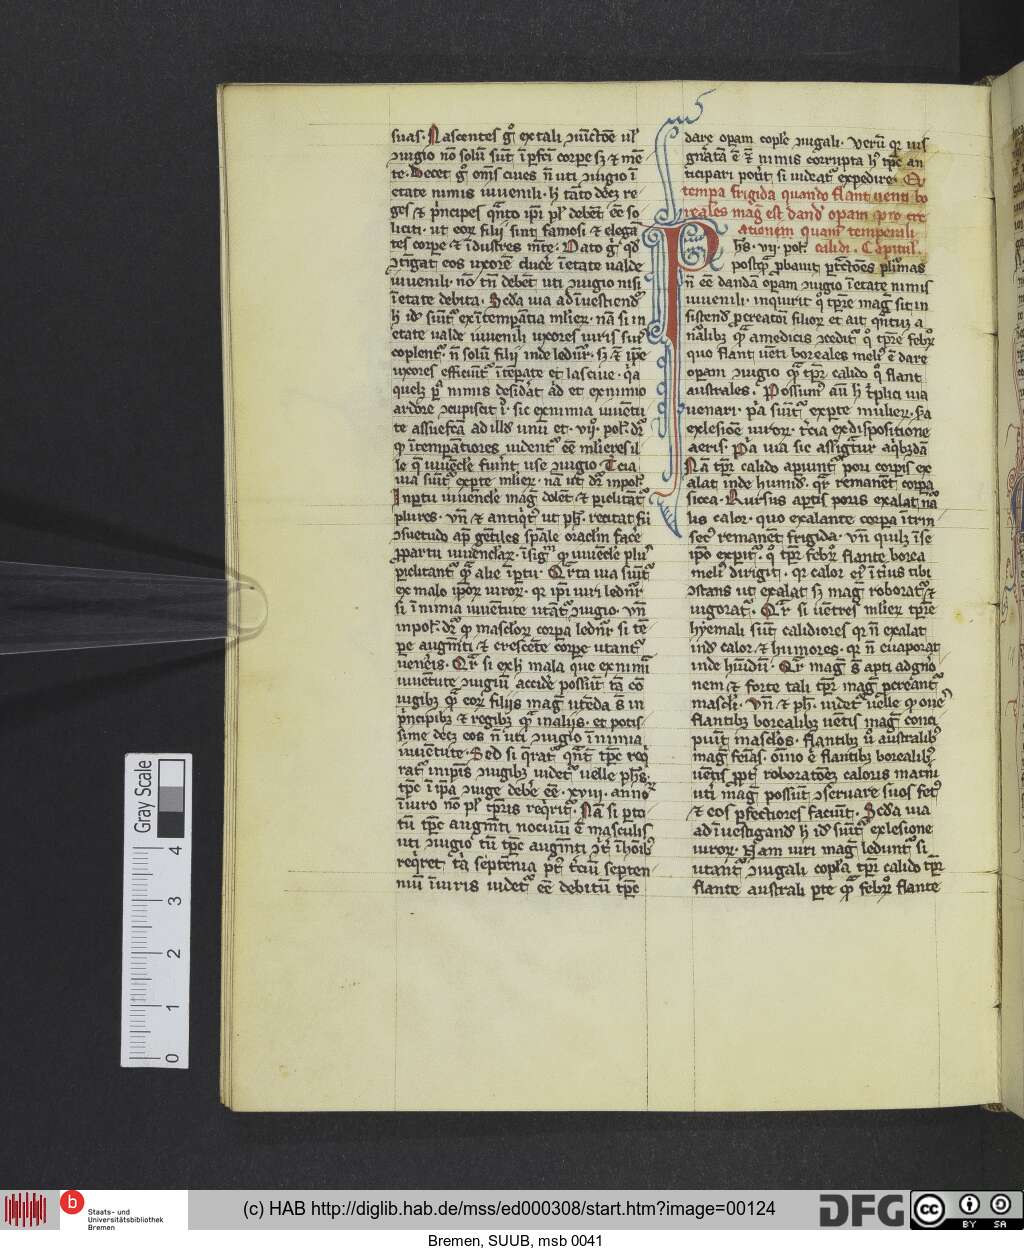 suas. Nascentes g̊ ex tali ꝯiu̅ctōe ul'
ꝯiugio nō solū sūt ī ꝑfcī corpe sꝫ ⁊ mē
te. Decet g̊ om̄s ciues n̄ uti ꝯiugio ī
etate nimis iuuenili. h tāto decꝫ re
ges ⁊ pͥncipes qͣnto ip̄i plꝰ debēt ēe so
liciti. ut eoꝝ filii sint famosi ⁊ elegā
tes corpe ⁊ īdustres mēte. Dato gͥ qd
ꝯtīgat eos uxorē ducē ī etate ualde
iuuenili. nō tn̄ debēt uti ꝯiugio nisi
ī etate debita. Scd̄a uia ad īuestiend̄
h id̄ sūitͬ ex ītempantia mlieꝝ. nā si in
etate ualde iuuenili uxores uiris suis
copulentͬ. n̄ solū filii inde ledūtͬ. sꝫ ⁊ ip̄e
uxores efficiūtͬ ītempate ⁊ lasciue. qͥa
nimis desid̄at ad et ex nimio
ardore ꝯcupiscit ī. sic ex nimia iuuētu
te assuefcā ad illd̄ unū et. vijͦ. pol'. dꝛ
qͦ ītempantiores uidentͬ ēe mlieres il
le q̄ iuuēcle fuīnt use ꝯiugio. Tcia
uia sūitͬ ex ꝑte mlieꝝ. nā ut dꝛ in pol'.
In ꝑtu iuuencle mag̅ dolēt ⁊ ꝑiclitātͬ
plures. vn̄ ⁊ antiqͥtꝰ ut ph̄s. recitat fu
ꝯsuetudo ap̄ gētiles spāle oraclm facē
ꝓ ꝑartu iuuenclaꝝ. īsigͫ qͦ iuuēcle plꝰ
ꝑiclitantͬ qͣ alie ī ꝑtu. Qͣrta uia sūitͬ
ex malo ip̄oꝝ uiroꝝ. qꝛ ip̄i uiri ledūtͬ
si ī nimia iuuētute utātͬ ꝯiugio. vn̄
in pol'. dꝛ qͦ mascloꝝ corpa ledūtͬ si tē
pe augm̄ti ⁊ crescēte corpe utantͬ
ueneis. Qͣꝛ si ex h mala que ex nimia
iuuētute ꝯiugiū accidē possūt tā cō
iugibꝫ qͣ eoꝝ filiis mag̅ utēda s̄t in
pͥncipibꝫ ⁊ regibꝫ qͣ in aliis. et potis
sime decꝫ eos n̄ uti ꝯiugio ī nimia
iuuētute. Sed si q̄ratͬ qͣnt tp̄e req
ratͬ in pͥmis ꝯiugibꝫ uidetͬ uelle ph̄s.
tp̄e ī ip̄a ꝯiuge debē ēe. xviij. annoꝝ
ī uiro nō plꝰ tp̄ris reqͥritͬ. Nā si ꝑto
tū tp̄e augm̄ti nociuū ē masculis
uti ꝯiugio tū tp̄e augm̄ti ꝯt ī hoībꝫ
reqͥret tͣa septēnia pꝰ tͥciū septen
niū ī uiris uidetͬ ēe debitū tp̄e
dare opam cople ꝯiugali. Verū qꝛ uis
gnāta ē ⁊ nimis corrupta h tp̄e an
ticipari potit si uideatͬ expedire. Qͦ
tempa frigida quando flant uenti bo
reales mag̅ est dand opam pro cre
ationem quam temperali
calidi. Capitul'.
Phs. vij. pol'.
postqͣ ꝓbauit ꝑtctōes plͥmas
n̄ ēe dandā opam ꝯiugio ī etate nimis
iuuenili. inquirit qͦ tp̄re mag̅ sit in
sistend̄ ꝓcreatoī filioꝝ et ait qͥntū a
nālibꝫ qͣ a medicis ꝯceditͬ qͦ tp̄re febꝝ
quo flant uēti boreales meliꝰ ē dare
opam ꝯiugio qͣ tp̄r calido qͦ flant
australes. Possumꝰ aū h tͥplici uia
uenari. pͥa sūitͬ ex ꝑte mulieꝝ. scd̄a
ex lesiōe uiroꝝ. tͥcia ex dispositione
aeris. Pͥa uia sic assigͬtur a qͥbꝫdā
Nā tp̄r calido apiuntͬ pori corpis ex
alat inde humid̄. qꝛ remanēt corpa
sicca. Rursus aptis poris exalat nā
lis calor. quo exalante corpa ītrin
secꝰ remanēt frigida. vn̄ quilꝫ ī se
ip̄o expitͬ. qͦ tp̄r febꝝ flante borea
meliꝰ dirigit. qꝛ calor eiꝰ ītius tibi
ꝯstans ut exalat sꝫ mag̅ roboratͬ ⁊
uigoratͬ. Qͣꝛ si uētres mlieꝝ tp̄re
hyemali sūt calidiores qꝛ n̄ exalat
ind̄ calor ⁊ humores. qꝛ n̄ euaporat
inde hūdū. Qͣꝛ mag̅ s̄t apti ad gn̄o
nem ⁊ forte tali tp̄r mag̅ pcreantͬ
mascli. Vn̄ ⁊ ph̄s. uidetͬ uelle qͦ oues
flantibꝫ borealibꝫ uētis mag̅ conci
piūt masclos. flantibꝫ ū australibꝫ
mag̅ feīas. oīno ē flantibꝫ borealibꝫ
uētis ꝓpt roboratōeꝫ caloris matrū
uti mag̅ possūt ꝯseruare suos fetꝰ
⁊ eos ꝑfectiores faciūt. Scd̄a uia
ad īuestigand̄ h id̄ sūitͬ ex lesione
uiroꝝ. Nam uiri mag̅ leduntͬ si
utantͬ ꝯiugali copla tp̄r calido tp̄r
flante australi ꝑte qͣ febꝝ flante
Gray Scale
4
3
2
1
0
b
Staats- und
Universitätsbibliothek
Bremen
(c) HAB http://diglib.hab.de/mss/ed000308/start.htm?image=00124
DFG
cc
BY SA
Bremen, SUUB, msb 0041